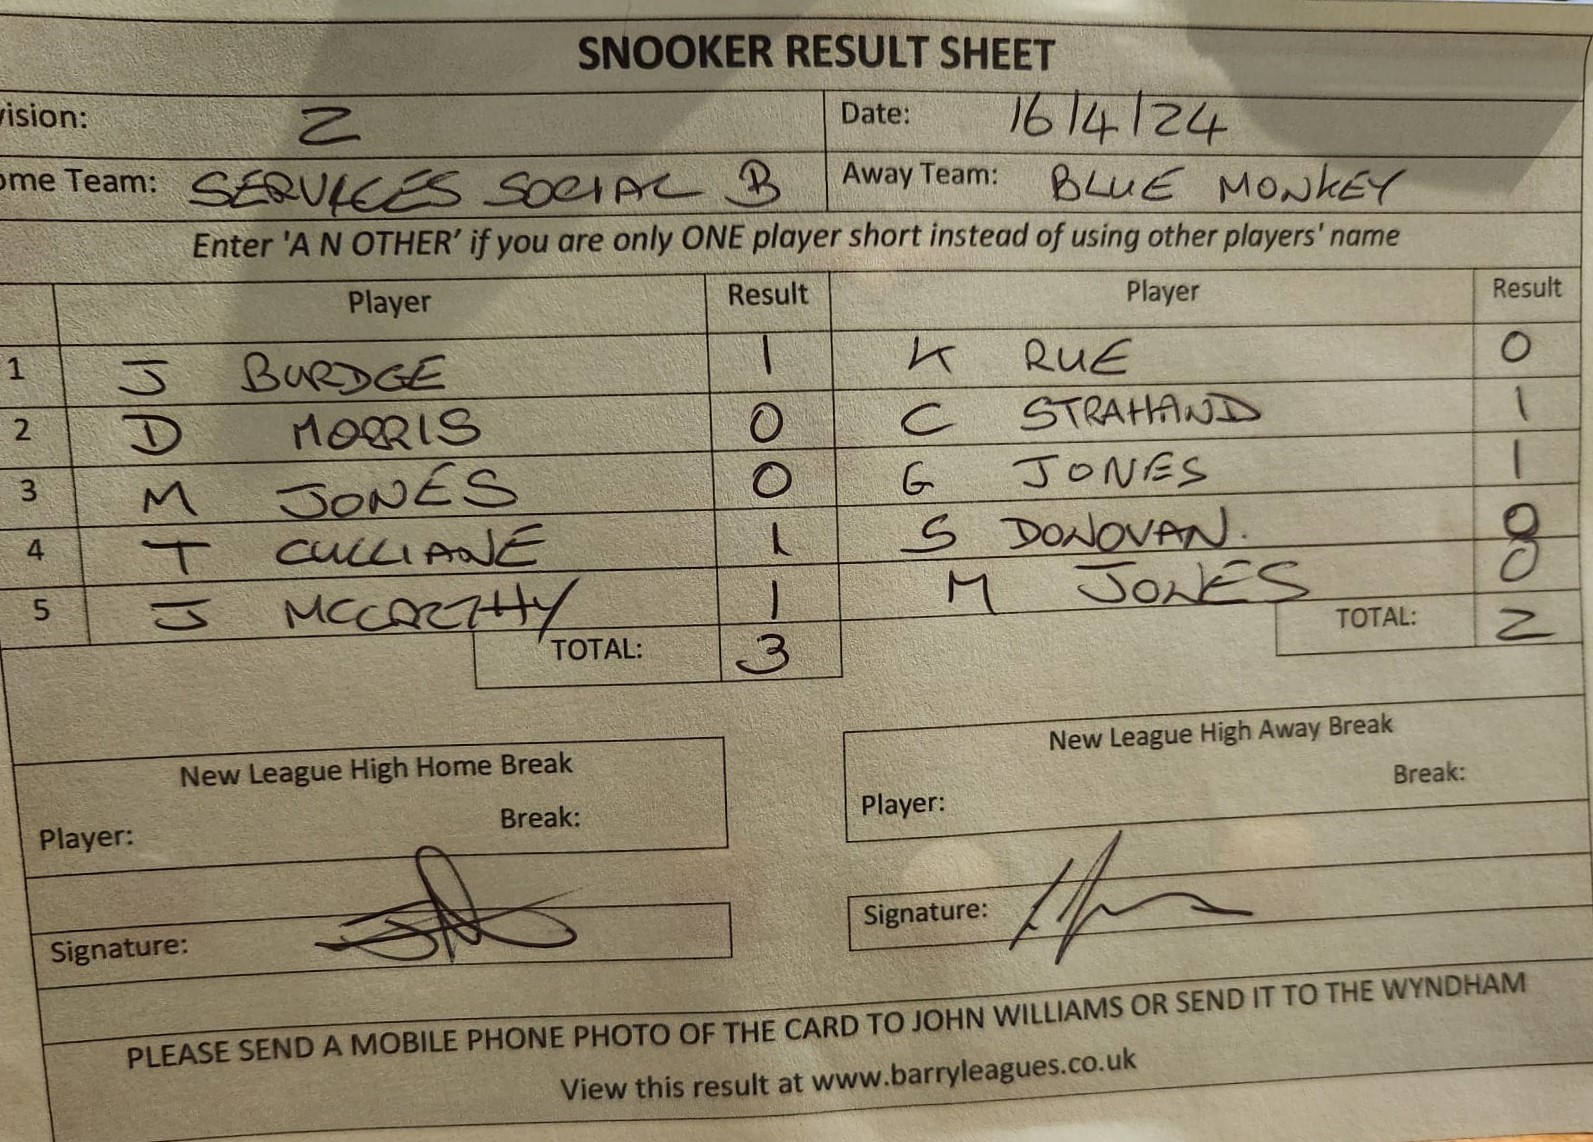 SNOOKER RESULT SHEET
ision: 2 Date: 16/4/24
ome Team: SERVICES SOCIAL B Away Team: BLUE MONKEY
Enter 'A N OTHER' if you are only ONE player short instead of using other players' name
Player Result Player Result
1 J BURDGE 1 K RUE 0
2 D MORRIS 0 C STRAHAND 1
3 M JONES 0 G JONES 1
4 T CULLIANE 1 S DONOVAN. 0
5 J MCCARTHY 1 M JONES 0
TOTAL: 3 TOTAL: 2
New League High Home Break New League High Away Break
Player: Break: Player: Break:
Signature: Signature:
PLEASE SEND A MOBILE PHONE PHOTO OF THE CARD TO JOHN WILLIAMS OR SEND IT TO THE WYNDHAM
View this result at www.barryleagues.co.uk